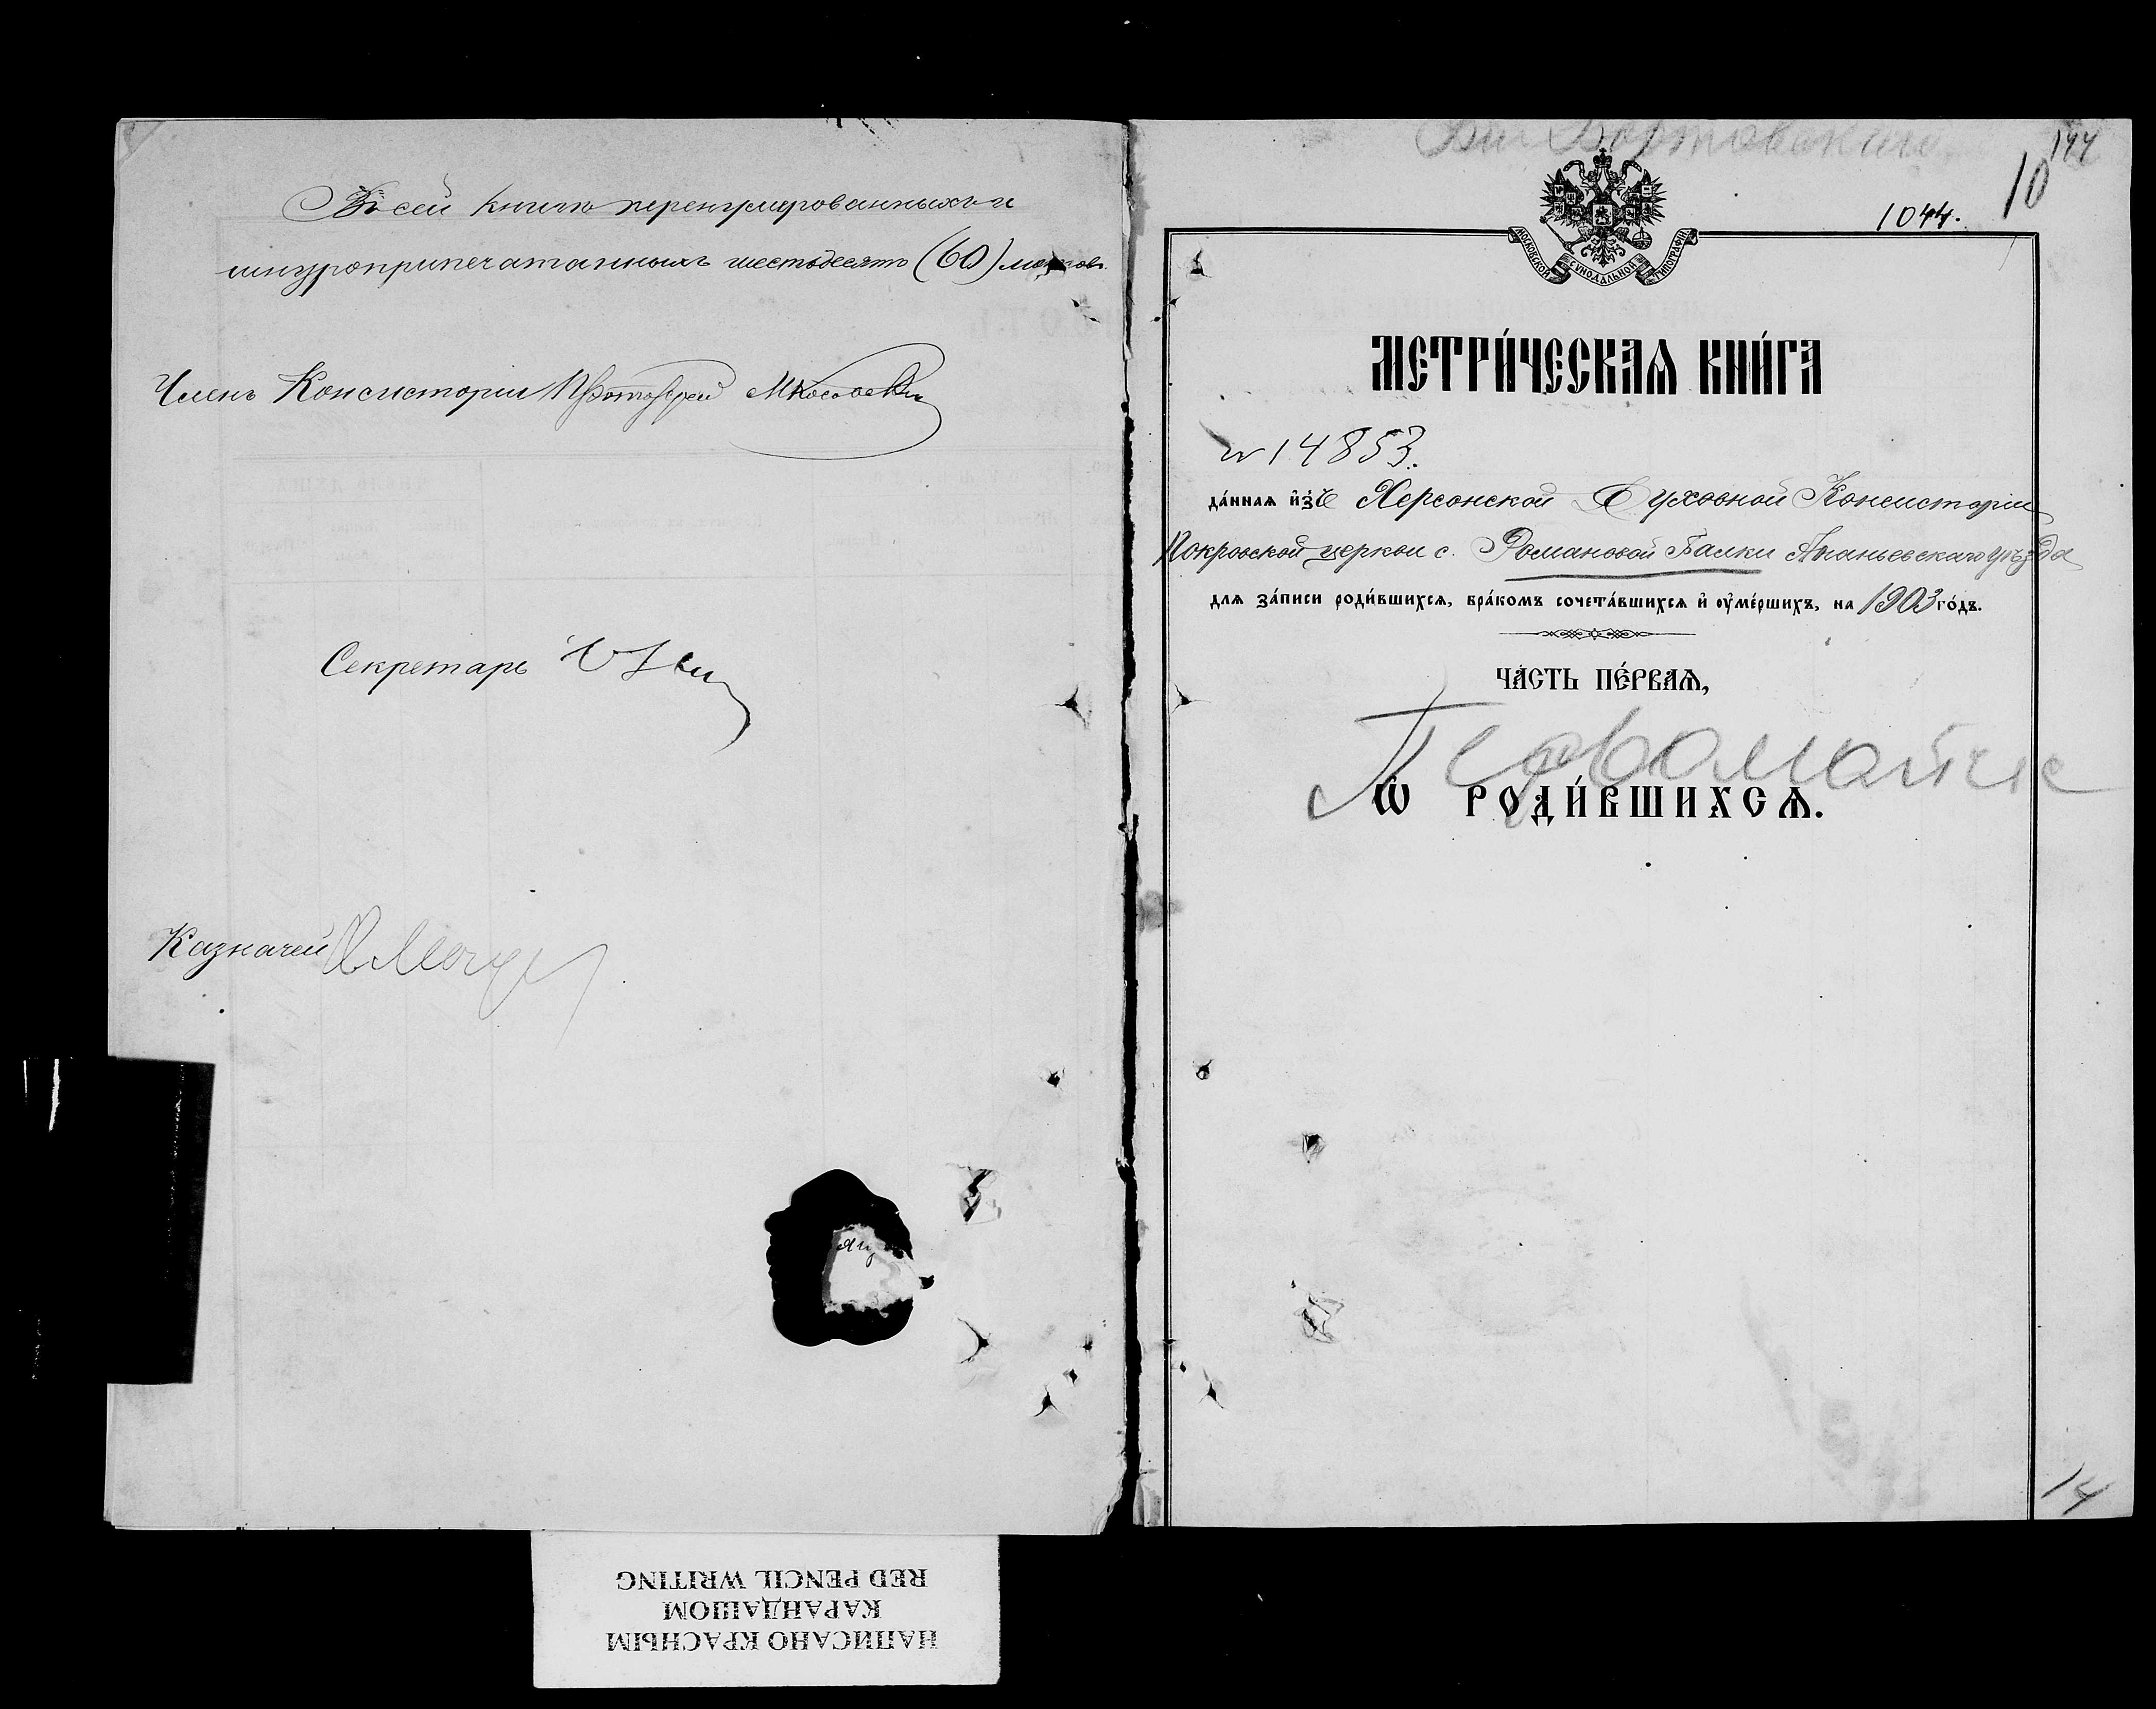 Въ сей книгѣ перенумерованныхъ и
шнуроприпечатанныхъ шестьдесятъ (60) листовъ.
Членъ Консисторіи Протоіерей
Секретарь
Казначей
144
10
1044.
МОСКОВСКОЙ СѴНОДАЛЬНОЙ ТИПОГРАФІИ
МЕТРИ́ЧЕСКАѦ КНИ́ГА
№ 14853.
да́ннаѧ и҆зъ Херсонской Духовной Консисторіи
Покровской церкви с. Романовой Балки Ананьевскаго уѣзда
для за́писи роди́вшихсѧ, бра́комъ сочета́вшихсѧ и҆ оу҆ме́ршихъ, на 1903 го́дъ.
ЧА́СТЬ ПЕ́РВАѦ,
Первомайск
Ѡ РОДИ́ВШИХСѦ.
14
НАПИСАНО КРАСНЫМ
КАРАНДАШОМ
RED PENCIL WRITING